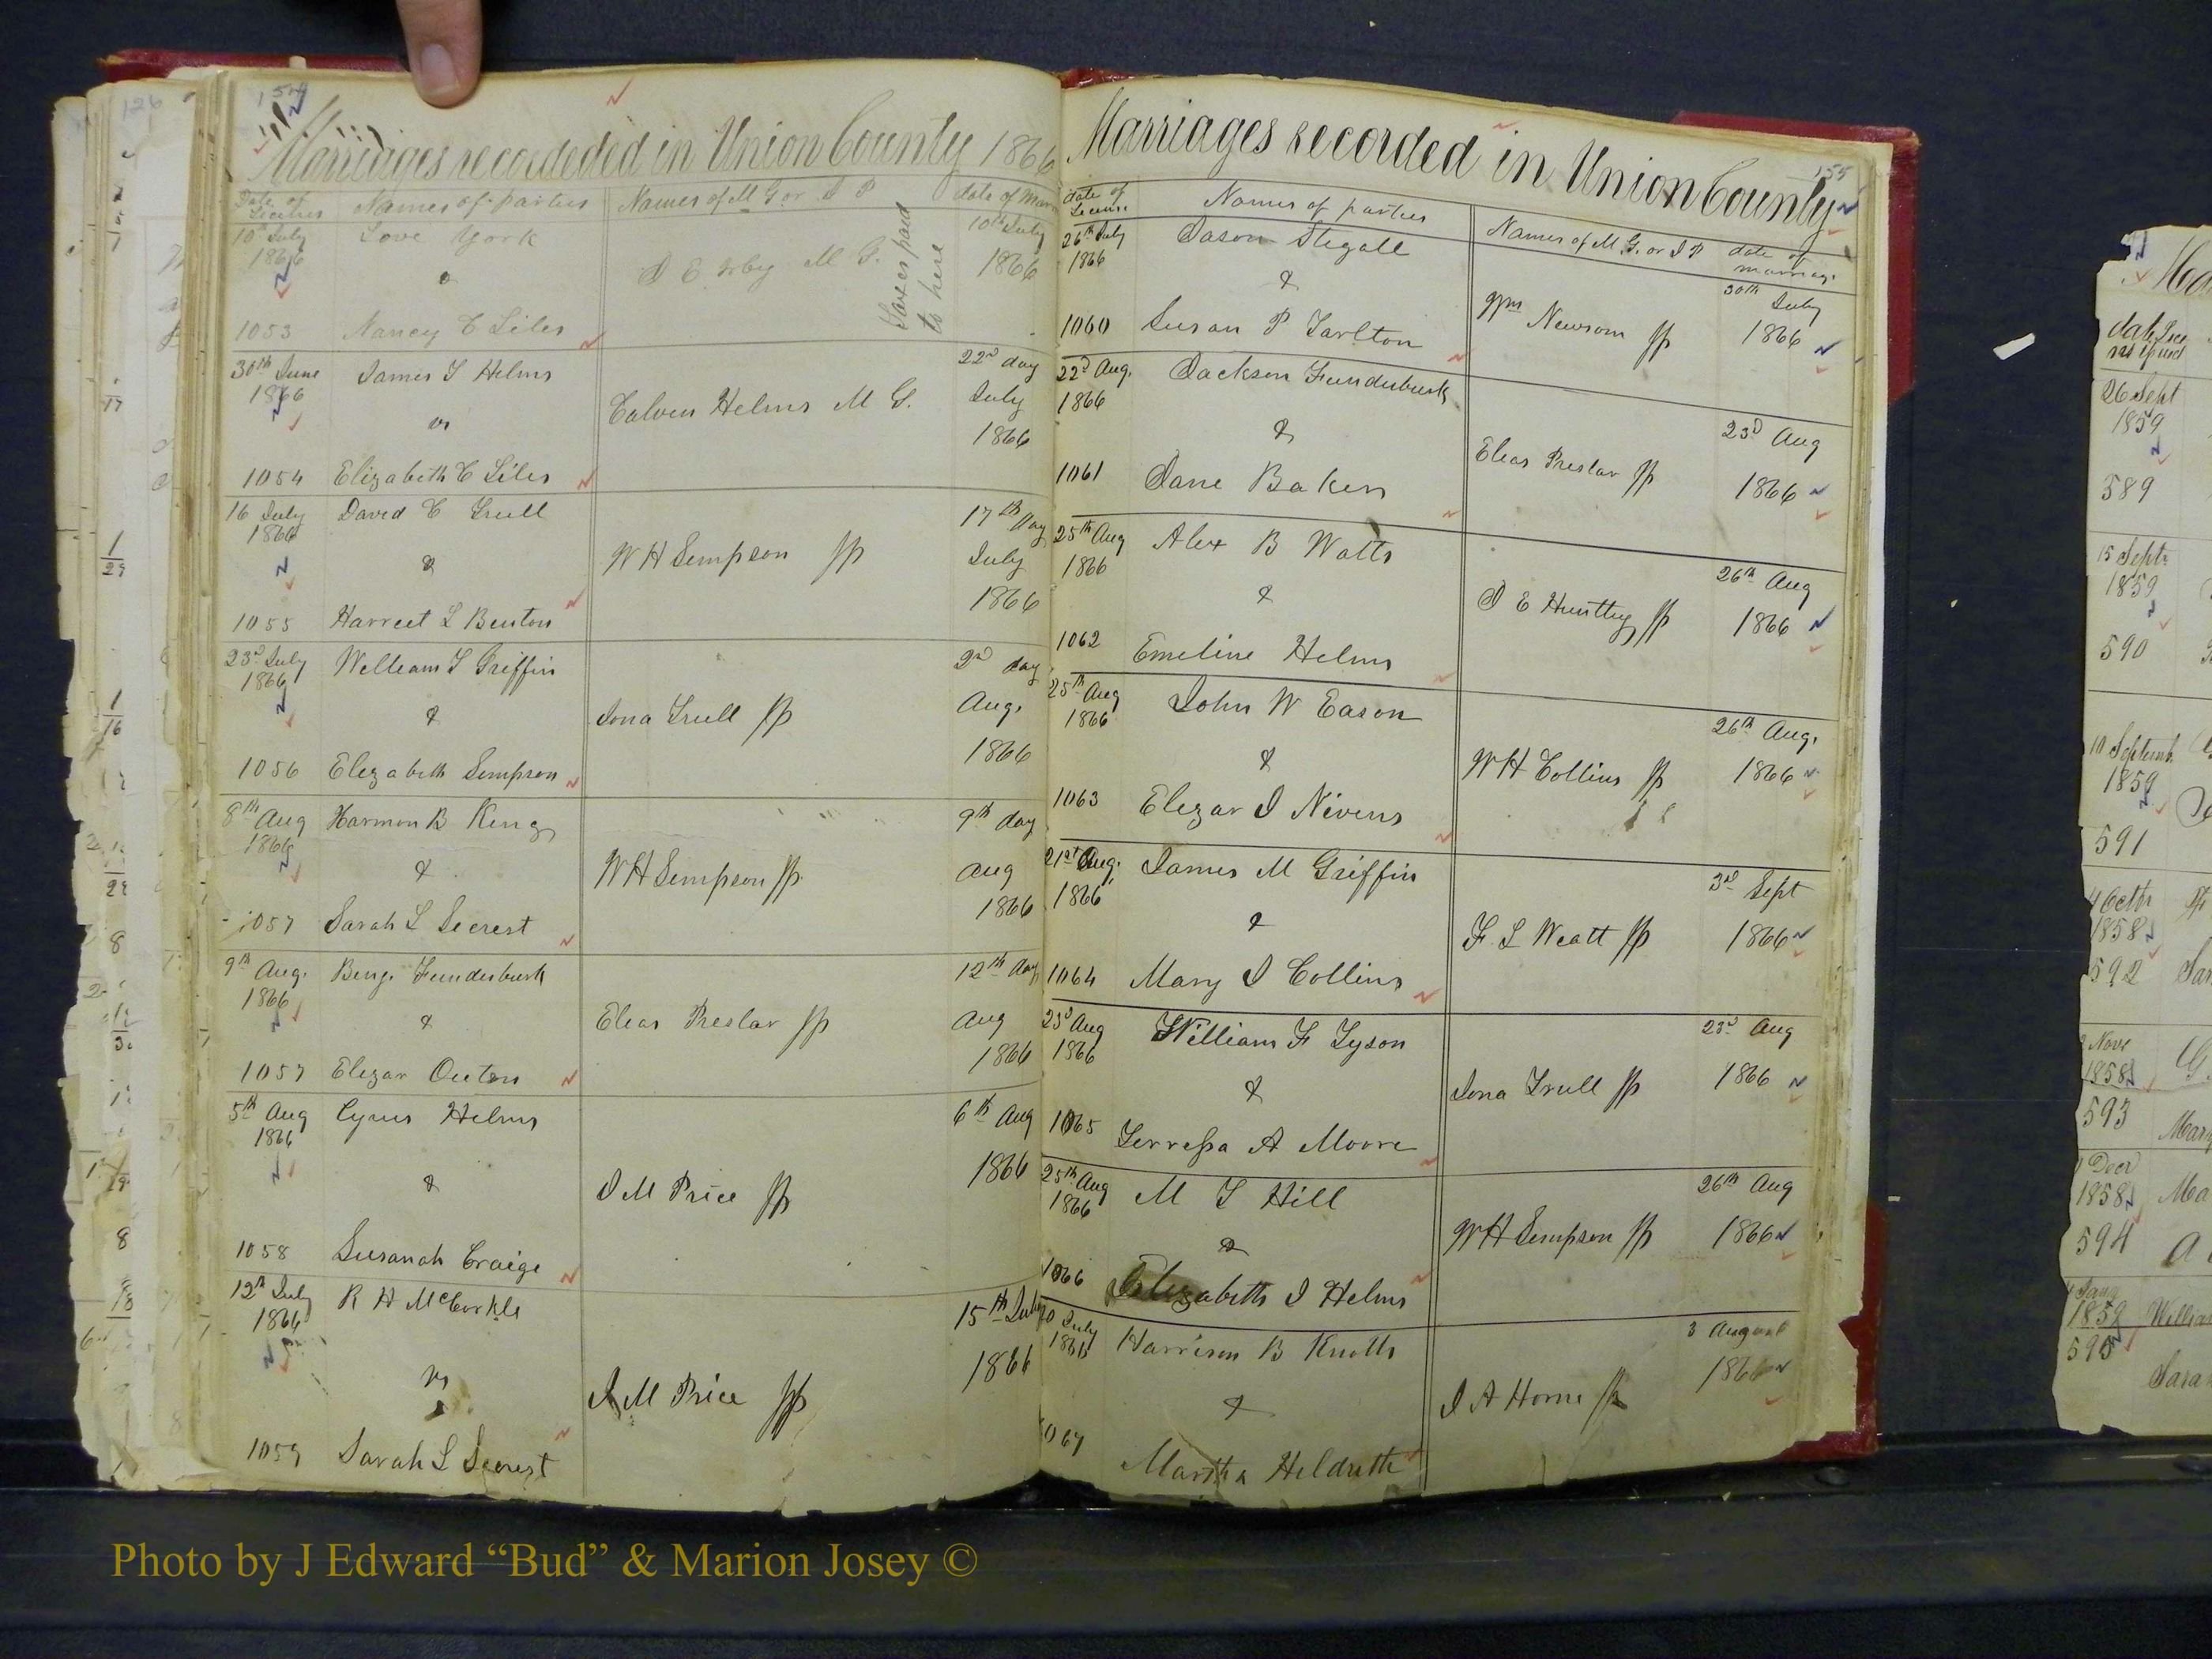 154
Marriages recordeded in Union County 1866
Date of License Names of parties Names of M G or J P date of Marr
10th July 1866 Love York 10th July
& J E Irby M G. 1866
Taxes paid to here
1053 Nancy C Liles
30th June 1866 James T Helms 22nd day
vs Calvin Helms M G. July
1866
1054 Elizabeth C Liles
16 July 1866 David C Trull 17th Day
& W H Simpson JP July
1866
1055 Harriet L Benton
23d July 1866 William T Griffin 2nd day
& Iona Trull JP Aug.
1866
1056 Elizabeth Simpson
8th Aug 1866 Harmon B King 9th day
& W H Simpson JP. Aug
1866
1057 Sarah L Secrest
9th Aug. 1866 Benj. Funderburk 12th day
& Elias Preslar JP Aug
1866
1057 Elizar Outen
5th Aug 1866 Cyrus Helms 6th Aug
& J M Price JP 1866
1058 Susanah Craige
12th July 1866 R H McCorkle 15th July
vs J M Price JP 1866
1059 Sarah L Secrest
155
Marriages recorded in Union County
date of License Names of parties Names of M G. or J P date of marriage
26th July 1866 Jason Stegall 30th July
& Wm Newsom JP 1866
1060 Susan P Tarlton
22d Aug. 1866 Jackson Funderburk
& Elias Preslar JP 23d Aug
1061 Jane Baker 1866
25th Aug 1866 Alex B Watts 26th Aug
& J E Huntley JP 1866
1062 Emeline Helms
25th Aug 1866 John W Eason 26th Aug.
& W H Collins JP 1866
1063 Elezar J Nivens
21st Aug. 1866 James M Griffin 3rd Sept
& F. L Weatt JP 1866
1064 Mary J Collins
23d Aug 1866 William F Tyson 23d Aug
& Iona Trull JP 1866
1065 Terressa A Moore
25th Aug 1866 M T Hill 26th Aug
& W H Simpson JP 1866
1066 Elizabeth J Helms
July 1866 Harrison B Knotts 3 August
& J A Horne JP 1866
067 Martha Heldreth
26 Sept
1859
589
15 Septr
1859
590
10 Septemb
1859
591
4 Octbr
1858
592
Nove
1858
593
1858
594
1859
595
Photo by J Edward “Bud” & Marion Josey ©